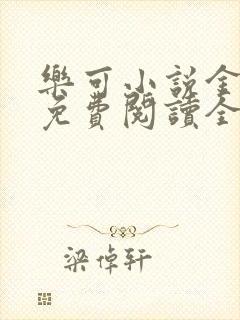 樂可小說全
免費閱讀全
梁倬轩